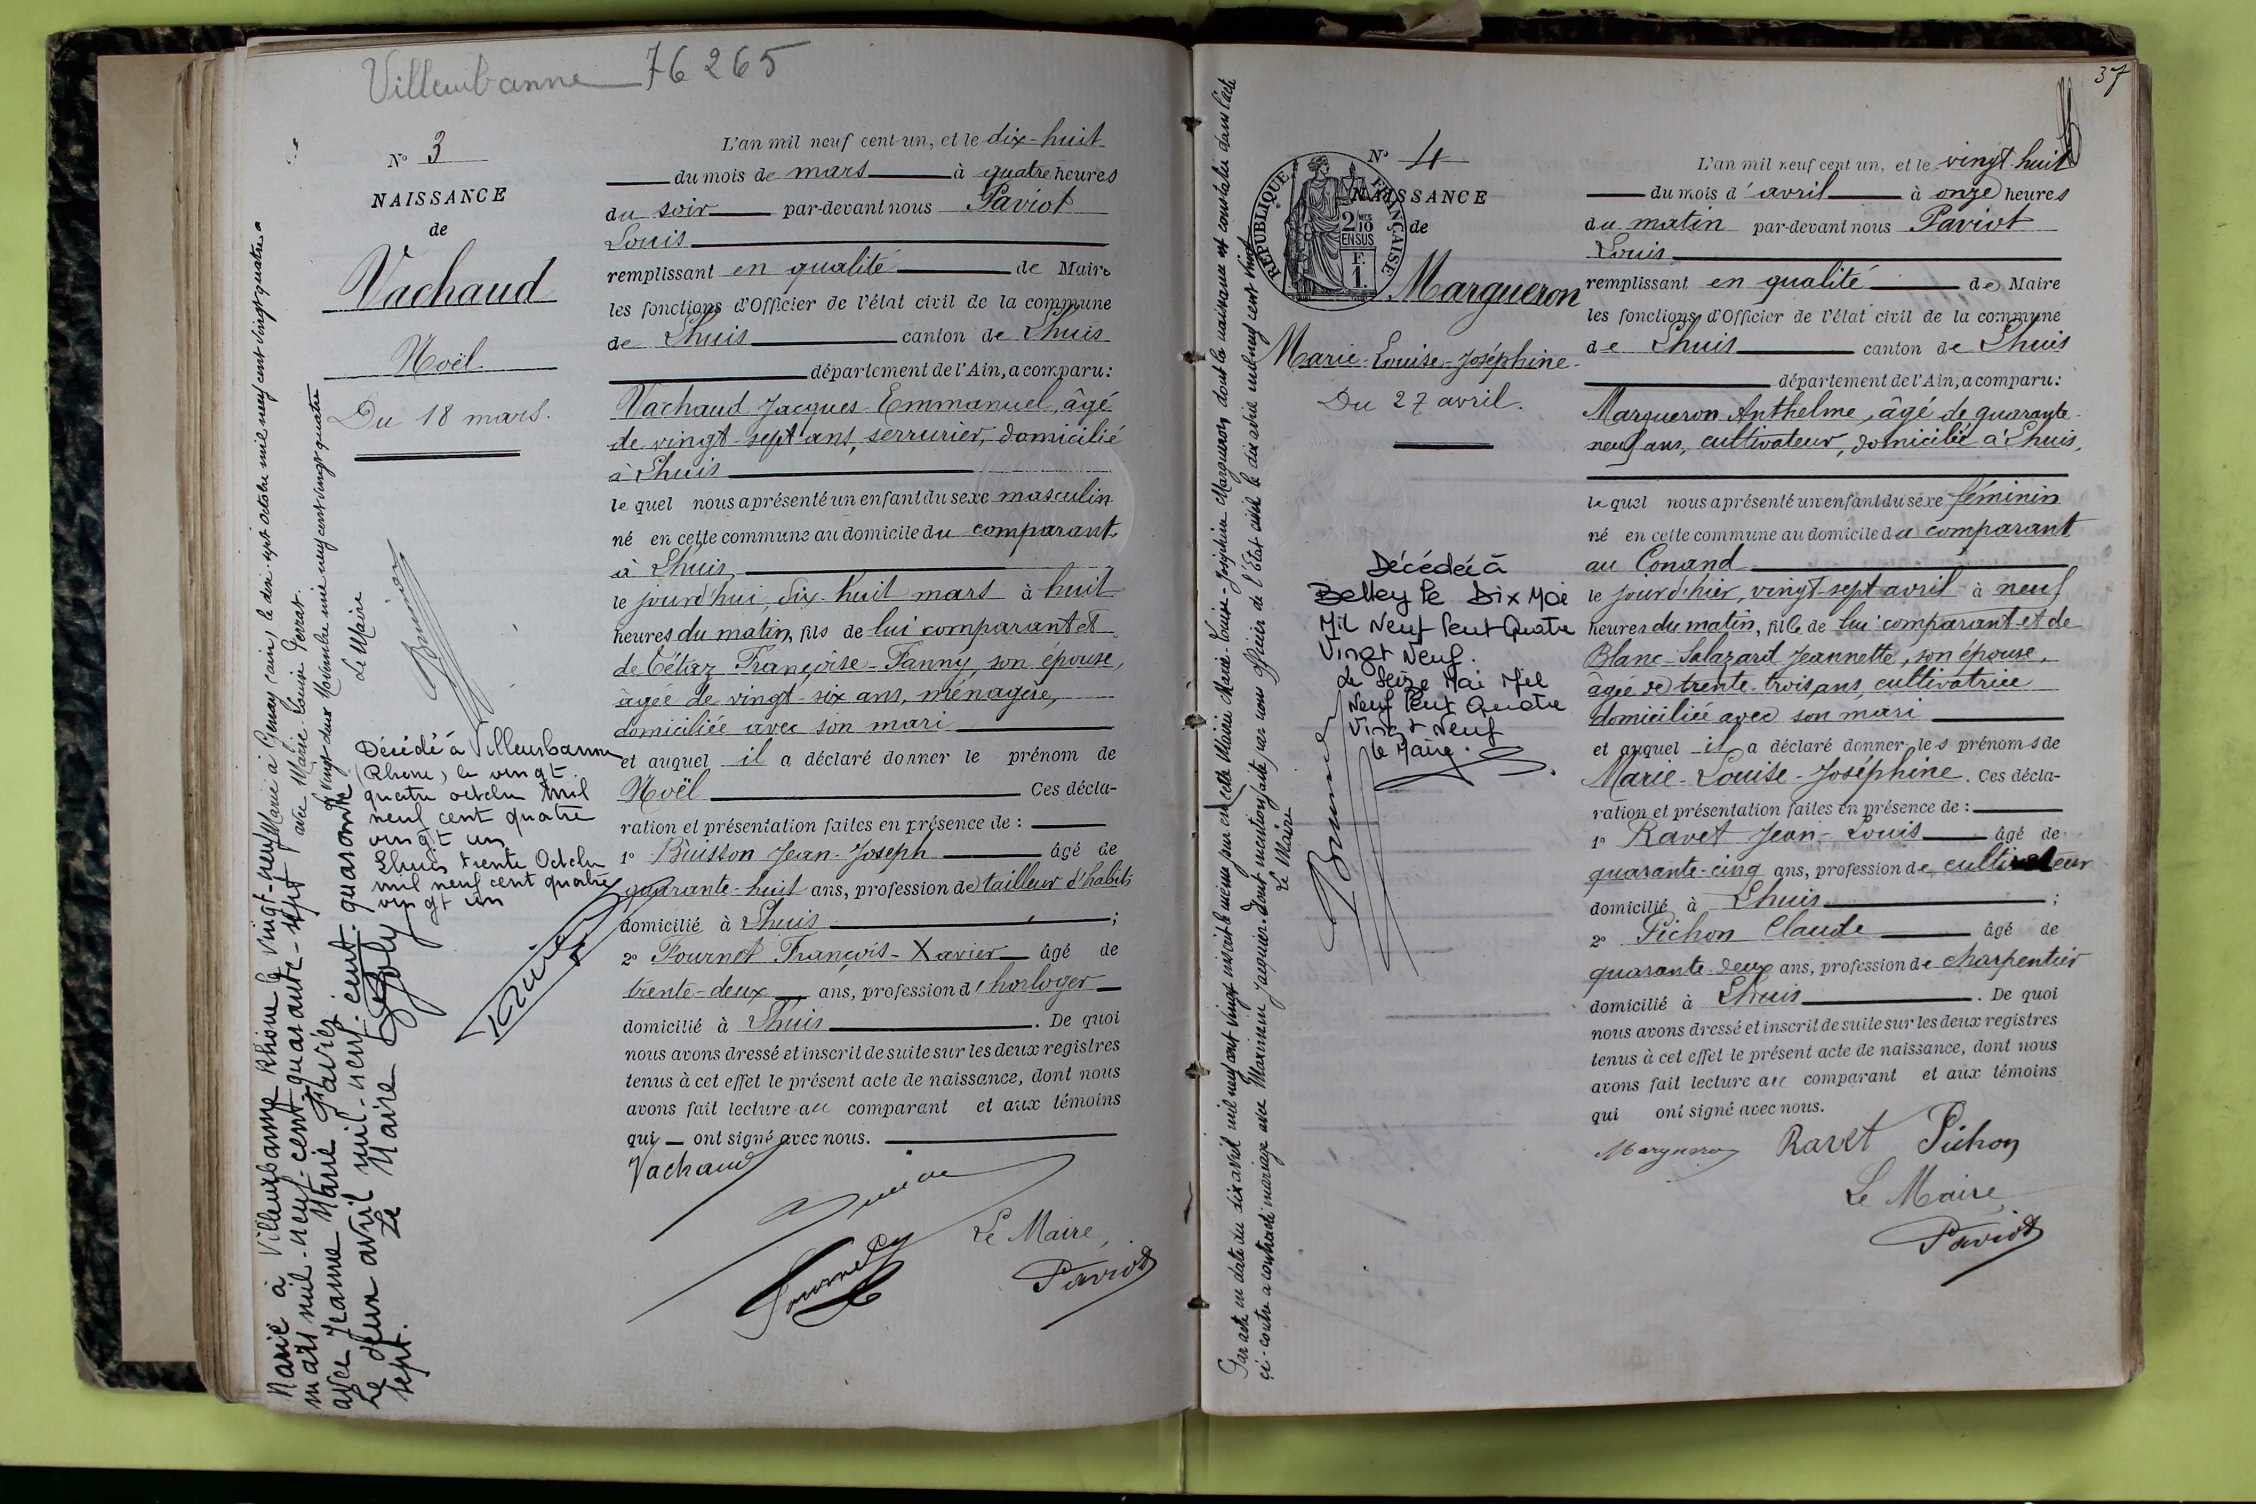 Villeurbanne 76265
N° 3
NAISSANCE
de
Vachaud
Noël.
Du 18 mars.
L'an mil neuf cent un, et le dix-huit
du mois de mars à quatre heures
du soir par-devant nous Paviot
Louis
remplissant en qualité de Maire
les fonctions d'Officier de l'état civil de la commune
de Lhuis canton de Lhuis
département de l'Ain, a comparu:
Vachaud Jacques Emmanuel, âgé
de vingt-sept ans, serrurier, domicilié
à Lhuis
le quel nous a présenté un enfant du sexe masculin
né en cette commune au domicile du comparant
à Lhuis
le jourd'hui, dix-huit mars à huit
heures du matin, fils de lui comparant et
de Tétiaz Françoise-Fanny, son épouse,
âgée de vingt-six ans, ménagère,
domiciliée avec son mari
et auquel il a déclaré donner le prénom de
Noël Ces décla-
ration et présentation faites en présence de :
1° Buisson Jean-Joseph âgé de
quarante-huit ans, profession de tailleur d'habits
domicilié à Lhuis ;
2° Fournet François-Xavier âgé de
trente-deux ans, profession d'horloger
domicilié à Lhuis . De quoi
nous avons dressé et inscrit de suite sur les deux registres
tenus à cet effet le présent acte de naissance, dont nous
avons fait lecture au comparant et aux témoins
qui ont signé avec nous.
Vachaud
Le Maire,
Paviot
Marié à Gernay (ain) le dix-sept octobre mil neuf cent vingt quatre
avec Marie Louise Perrat.
Le vingt deux Novembre mil neuf cent vingt quatre
Le Maire
Marié à Villeurbanne Rhône le vingt-neuf
mars mil-neuf-cent-quarante-sept
avec Jeanne Marie Pariez
Le deux avril mil-neuf-cent-quarante
sept. Le Maire
Décédé à Villeurbanne
(Rhône), le vingt
quatre octobre mil
neuf cent quatre
vingt un
Lhuis trente Octobre
mil neuf cent quatre
vingt un
37
N° 4
NAISSANCE
de
REPUBLIQUE FRANÇAISE
2 MES
10
EN SUS
F.
1.
Margueron
Marie-Louise-Joséphine
Du 27 avril.
L'an mil neuf cent un, et le vingt huit
du mois d'avril à onze heures
du matin par-devant nous Paviot
Louis
remplissant en qualité de Maire
les fonctions d'Officier de l'état civil de la commune
de Lhuis canton de Lhuis
département de l'Ain, a comparu:
Margueron Anthelme, âgé de quarante-
neuf ans, cultivateur, domicilié à Lhuis,
le quel nous a présenté un enfant du sexe féminin
né en cette commune au domicile du comparant
au Conand
le jour d'hier, vingt-sept avril à neuf
heures du matin, fille de lui comparant et de
Blanc-Salazard Jeannette, son épouse,
âgée de trente-trois ans, cultivatrice
domiciliée avec son mari
et auquel il a déclaré donner les prénoms de
Marie-Louise-Joséphine. Ces décla-
ration et présentation faites en présence de :
1° Ravet Jean-Louis âgé de
quarante-cinq ans, profession de cultivateur
domicilié à Lhuis ;
2° Pichon Claude âgé de
quarante-deux ans, profession de charpentier
domicilié à Lhuis . De quoi
nous avons dressé et inscrit de suite sur les deux registres
tenus à cet effet le présent acte de naissance, dont nous
avons fait lecture au comparant et aux témoins
qui ont signé avec nous.
Margueron Ravet Pichon
Le Maire
Paviot
Décédée à
Belley le Dix Mai
Mil Neuf Cent Quatre
Vingt Neuf.
Le Seize Mai Mil
Neuf Cent Quatre
Vingt Neuf
le Maire.
Par acte en date du dix avril mil neuf cent vingt inscrit le même jour en cette Mairie Marie-Louise-Joséphine Margueron dont la naissance est constatée dans l'acte
ci-contre a contracté mariage avec Maximin Jacquier. Dont mention faite par nous officier de l'état civil le dix avril mil neuf cent vingt
Le Maire